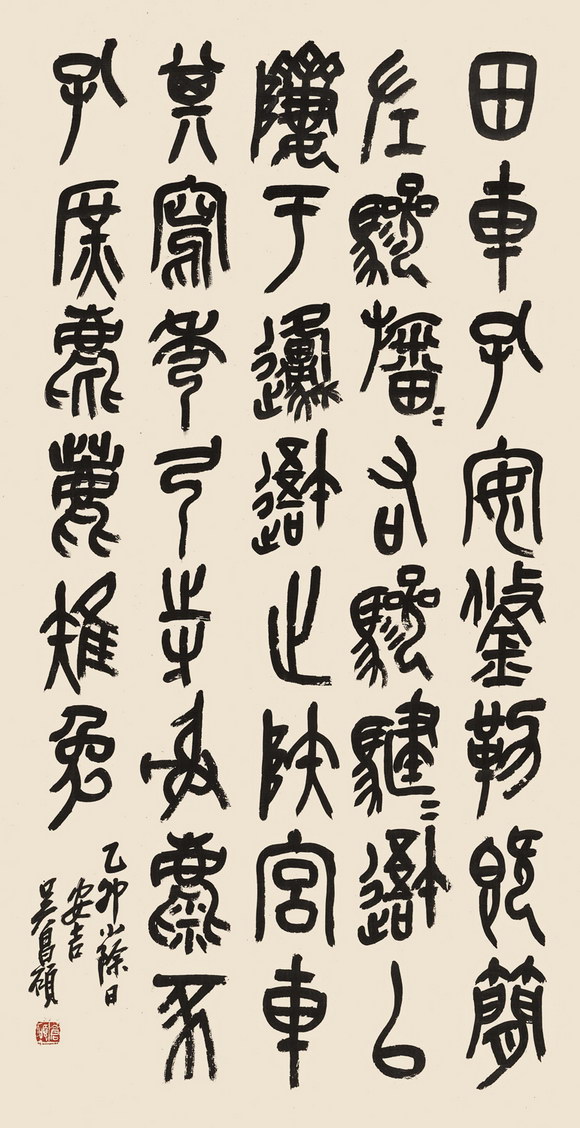 田車孔安鋚勒既簡
左驂旛=右驂騝=䢔以
隮于邍䢔止陝宮車
其寫秀弓寺射麋豕
孔庶麀鹿雉兔
乙卯小除日
安吉
吳昌碩